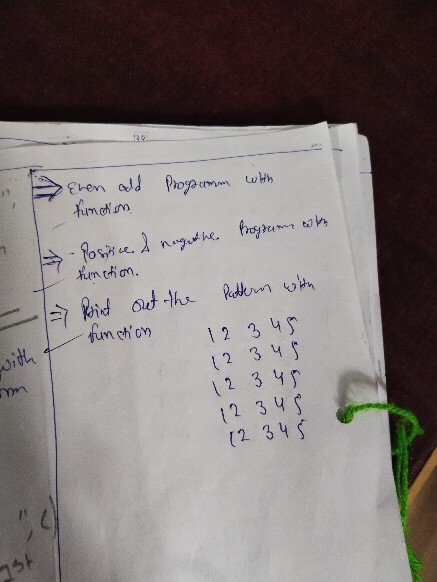 Even odd Programm with
function.
- Positive & negative Programm with
function.
Print out the Pattern with
function
1 2 3 4 5
1 2 3 4 5
1 2 3 4 5
1 2 3 4 5
1 2 3 4 5
with